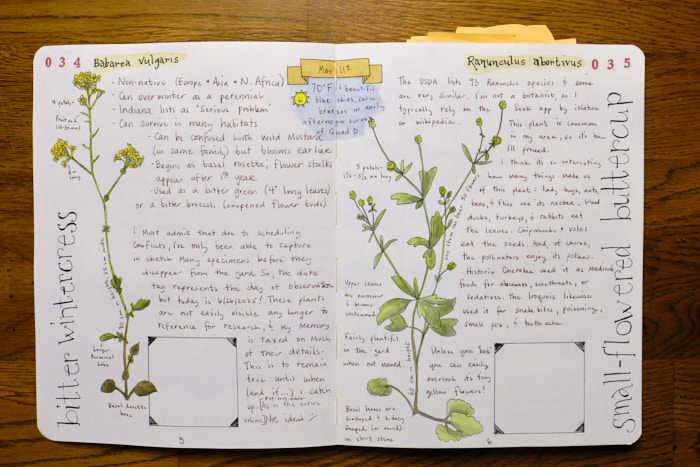 034
Babarea vulgaris
4 petals
fruit pod
- Non-native (Europe + Asia + N. Africa)
- Can overwinter as a perennial
- Indiana lists as 'Serious problem'
- Can survive in many habitats
- Can be confused with Wild Mustard
(in same family) but blooms earlier
- Begins as basal rosette; flower stalks
appear after 1st year.
- Used as a bitter green (4" long leaves)
or a bitter broccoli (unopened flower buds)
I must admit that due to scheduling
conflicts, I've only been able to capture
in sketch many specimens before they
disappear from the yard. So, the date
tag represents the day of observation
but today is 6/20/2025! These plants
are not easily visible any longer to
reference for research, & my memory
is taxed on much
of their details.
This is to remain
true until when
(and if...) I catch
up.
Not ideal
bitter wintercress
larger
terminal
lobe
Basal rosette
5
May 11th
70°F + beautiful
blue skies, calm
breezes in early
afternoon survey
of Quad D
Ranunculus abortivus
035
The USDA lists 93 Ranunculus species & some
are very similar. I'm not a botanist, so I
typically rely on the Seek app by iNature
or wikipedia.
This plant is common
in my area, so it's
I'll proceed.
I think it's so interesting
how many things make use
of this plant: bugs, ants,
bees, & flies use its nectar, wood
ducks, turkeys, & rabbits eat
the leaves. Chipmunks + voles
eat the seeds. And, of course,
the pollinators enjoy its pollens.
Historic Cherokee used it as medical
food for abscesses, sorethroats, or
sedatives. The Iroquois likewise
used it for snake bites, poisoning,
small pox, & toothache.
5 petals
Upper leaves
are narrower
+ become
Fairly plentiful
in the yard
when not mowed.
Unless you look
you can easily
overlook its tiny
yellow flowers!
Basal leaves are
scalloped & kidney
shaped (or round)
on short stems
small-flowered buttercup
6